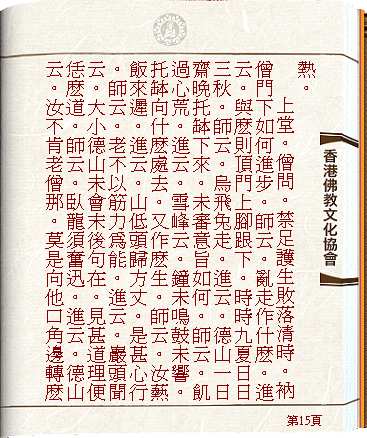 熱。
上堂。僧問。禁足護生敗落清時。衲
僧門下如何進步。師云。亂走作什麼。進
云。與麼則頂門上腳跟下。時時九夏日日
三秋。師云。烏飛兔走。進云。德山一日
齋晚托缽下來。未審意旨如何。師云。飢
過心荒。進云。雪峰云。鐘未鳴鼓未響。
托缽向什麼處去。又作麼生。師云。汝爇
飯來遲。進云。山低頭歸方丈。是甚心行
。師云。老不以筋力為能。進云。巖頭聞
云。大小德山未會末後句在。見甚道理便
恁麼道。師云。臥龍須奮迅。進云。德山
云。汝不肯老僧那。莫是向他口角邊轉麼
香港佛教文化協會
第15頁